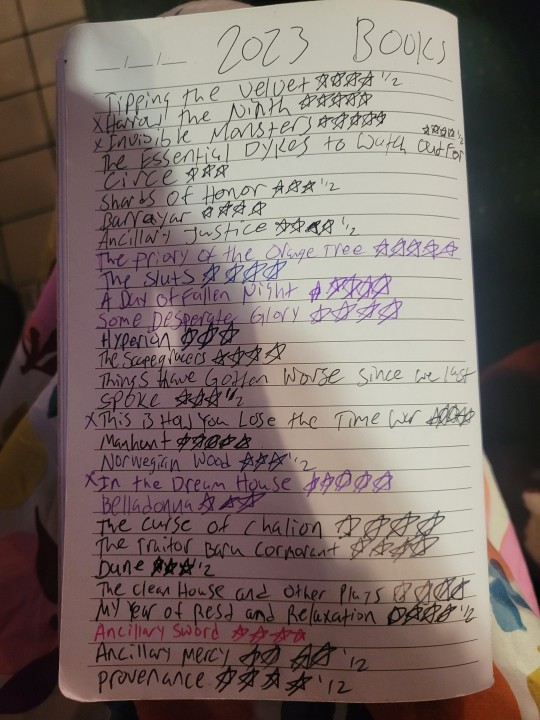 __/__/__ 2023 Books
Tipping the Velvet ☆☆☆☆ 1/2
x Harrow the Ninth ☆☆☆☆☆
x Invisible Monsters ☆☆☆☆☆
The Essential Dykes to Watch Out For ☆☆☆☆ 1/2
Circe ☆☆☆
Shards of Honor ☆☆☆ 1/2
Barrayar ☆☆☆☆
Ancillary Justice ☆☆☆☆ 1/2
The Priory of the Orange Tree ☆☆☆☆☆
The Sluts ☆☆☆☆
A Day of Fallen Night ☆☆☆☆☆
Some Desperate Glory ☆☆☆☆
Hyperion ☆☆☆
The Scapegracers ☆☆☆☆
Things Have Gotten Worse since we last
spoke ☆☆☆ 1/2
x This is How You Lose the Time War ☆☆☆☆
Manhunt ☆☆☆☆☆
Norwegian Wood ☆☆☆ 1/2
x In the Dream House ☆☆☆☆☆
Belladonna ☆☆☆
The Curse of Chalion ☆☆☆☆
The Traitor Baru Cormorant ☆☆☆☆
Dune ☆☆☆ 1/2
The Clean House and Other Plays ☆☆☆☆
My Year of Rest and Relaxation ☆☆☆☆ 1/2
Ancillary Sword ☆☆☆☆
Ancillary Mercy ☆☆☆☆ 1/2
provenance ☆☆☆☆ 1/2